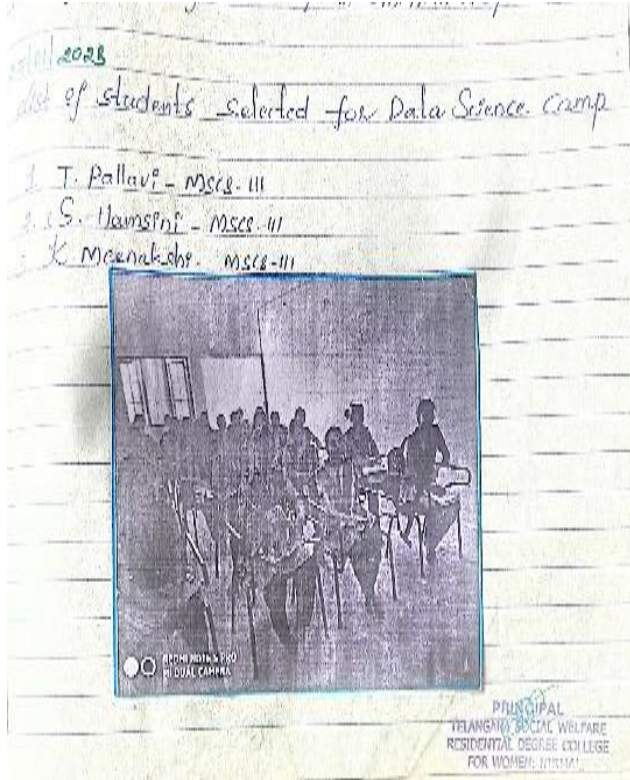 2023
List of students selected for Data Science camp
1. T. Pallavi - MSCS-III
2. S. Hamsini - MSCS-III
K Meenakshi. MSCS-III
REDMI NOTE 5 PRO
MI DUAL CAMERA
PRINCIPAL
TELANGANA SOCIAL WELFARE
RESIDENTIAL DEGREE COLLEGE
FOR WOMEN, NIRMAL